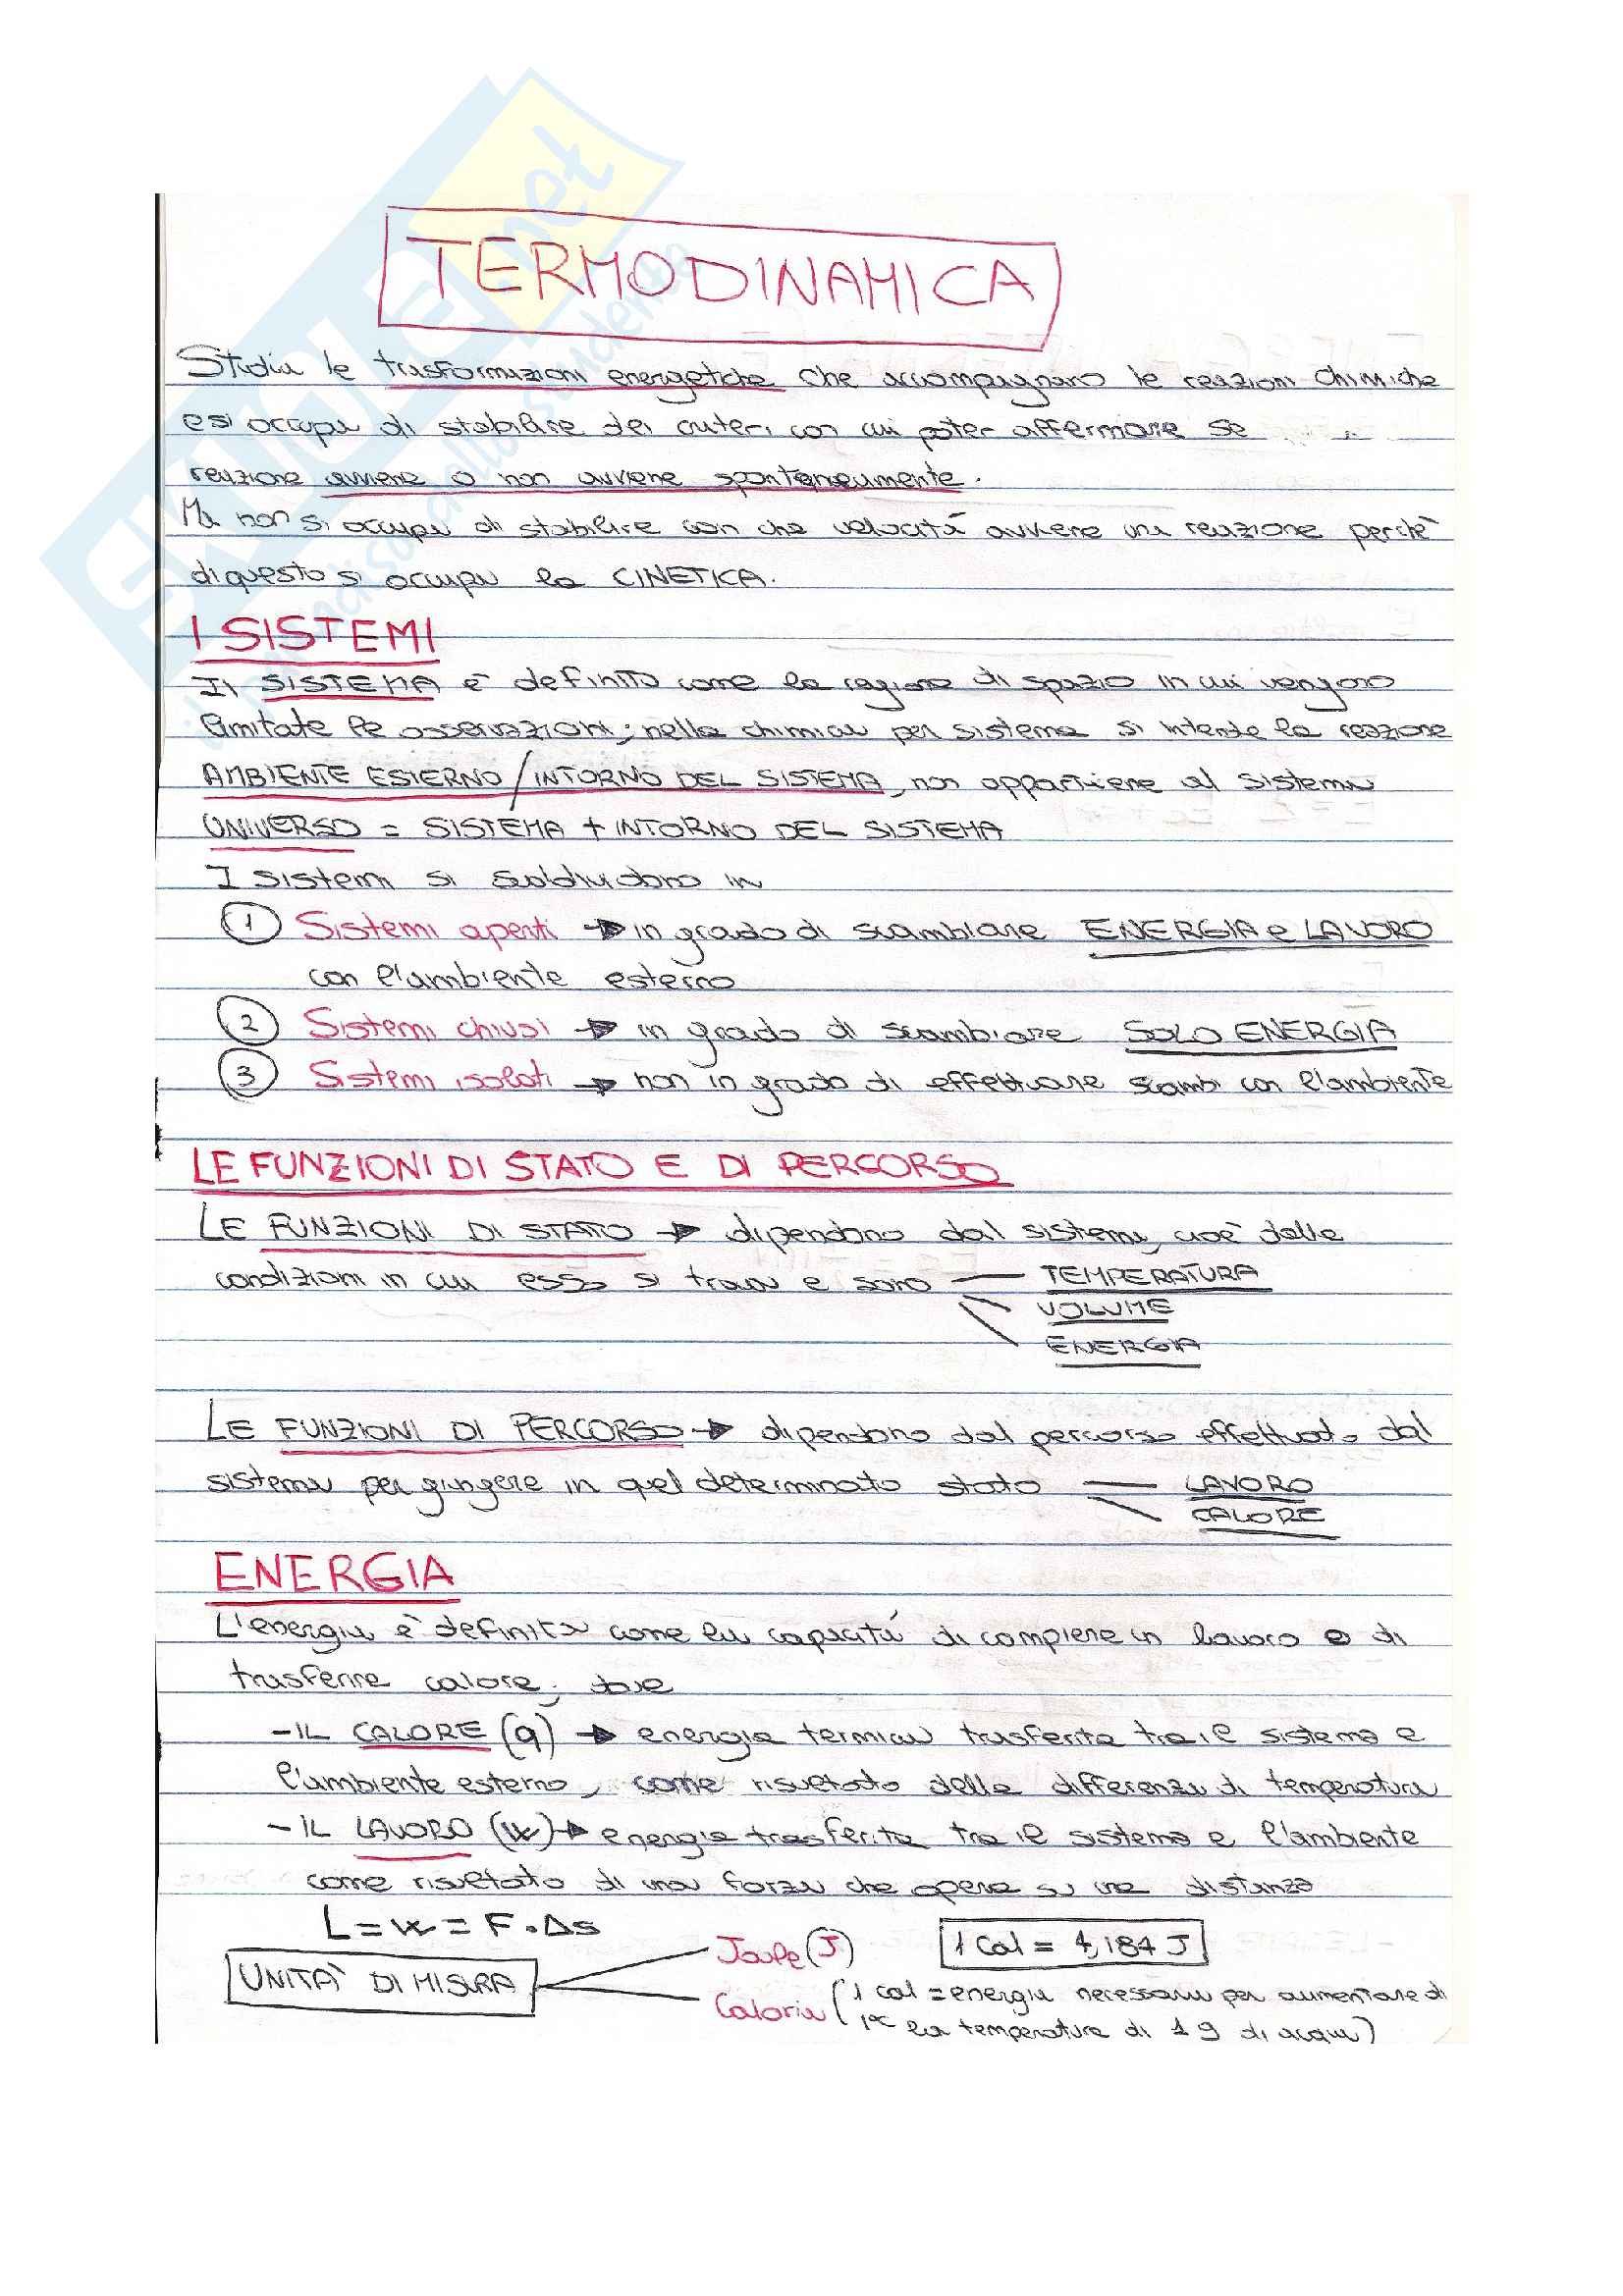 SKUOLA.net
il paradiso dello studente
TERMODINAMICA
Studia le trasformazioni energetiche che accompagnano le reazioni chimiche
e si occupa di stabilire dei criteri con cui poter affermare se
reazione avviene o non avviene spontaneamente.
Ma non si occupa di stabilire con che velocità avviene una reazione perchè
di questo si occupa la CINETICA.
I SISTEMI
Il SISTEMA è definito come la regione di spazio in cui vengono
limitate le osservazioni; nella chimica per sistema si intende la reazione
AMBIENTE ESTERNO / INTORNO DEL SISTEMA, non appartiene al sistema
UNIVERSO = SISTEMA + INTORNO DEL SISTEMA
I sistemi si suddividono in
1 Sistemi aperti → in grado di scambiare ENERGIA e LAVORO
con l'ambiente esterno
2 Sistemi chiusi → in grado di scambiare SOLO ENERGIA
3 Sistemi isolati → non in grado di effettuare scambi con l'ambiente
LE FUNZIONI DI STATO E DI PERCORSO
LE FUNZIONI DI STATO → dipendono dal sistema, cioè dalle
condizioni in cui esso si trova e sono — TEMPERATURA
VOLUME
ENERGIA
LE FUNZIONI DI PERCORSO → dipendono dal percorso effettuato dal
sistema per giungere in quel determinato stato — LAVORO
CALORE
ENERGIA
L'energia è definita come la capacità di compiere un lavoro o di
trasferire calore; dove
- IL CALORE (q) → energia termica trasferita tra il sistema e
l'ambiente esterno, come risultato della differenza di temperatura
- IL LAVORO (w) → energia trasferita tra il sistema e l'ambiente
come risultato di una forza che opera su una distanza
L = w = F · Δs
UNITA' DI MISURA
Joule (J)
1 Cal = 4,184 J
Caloria (1 cal = energia necessaria per aumentare di
1°C la temperatura di 1 g di acqua)